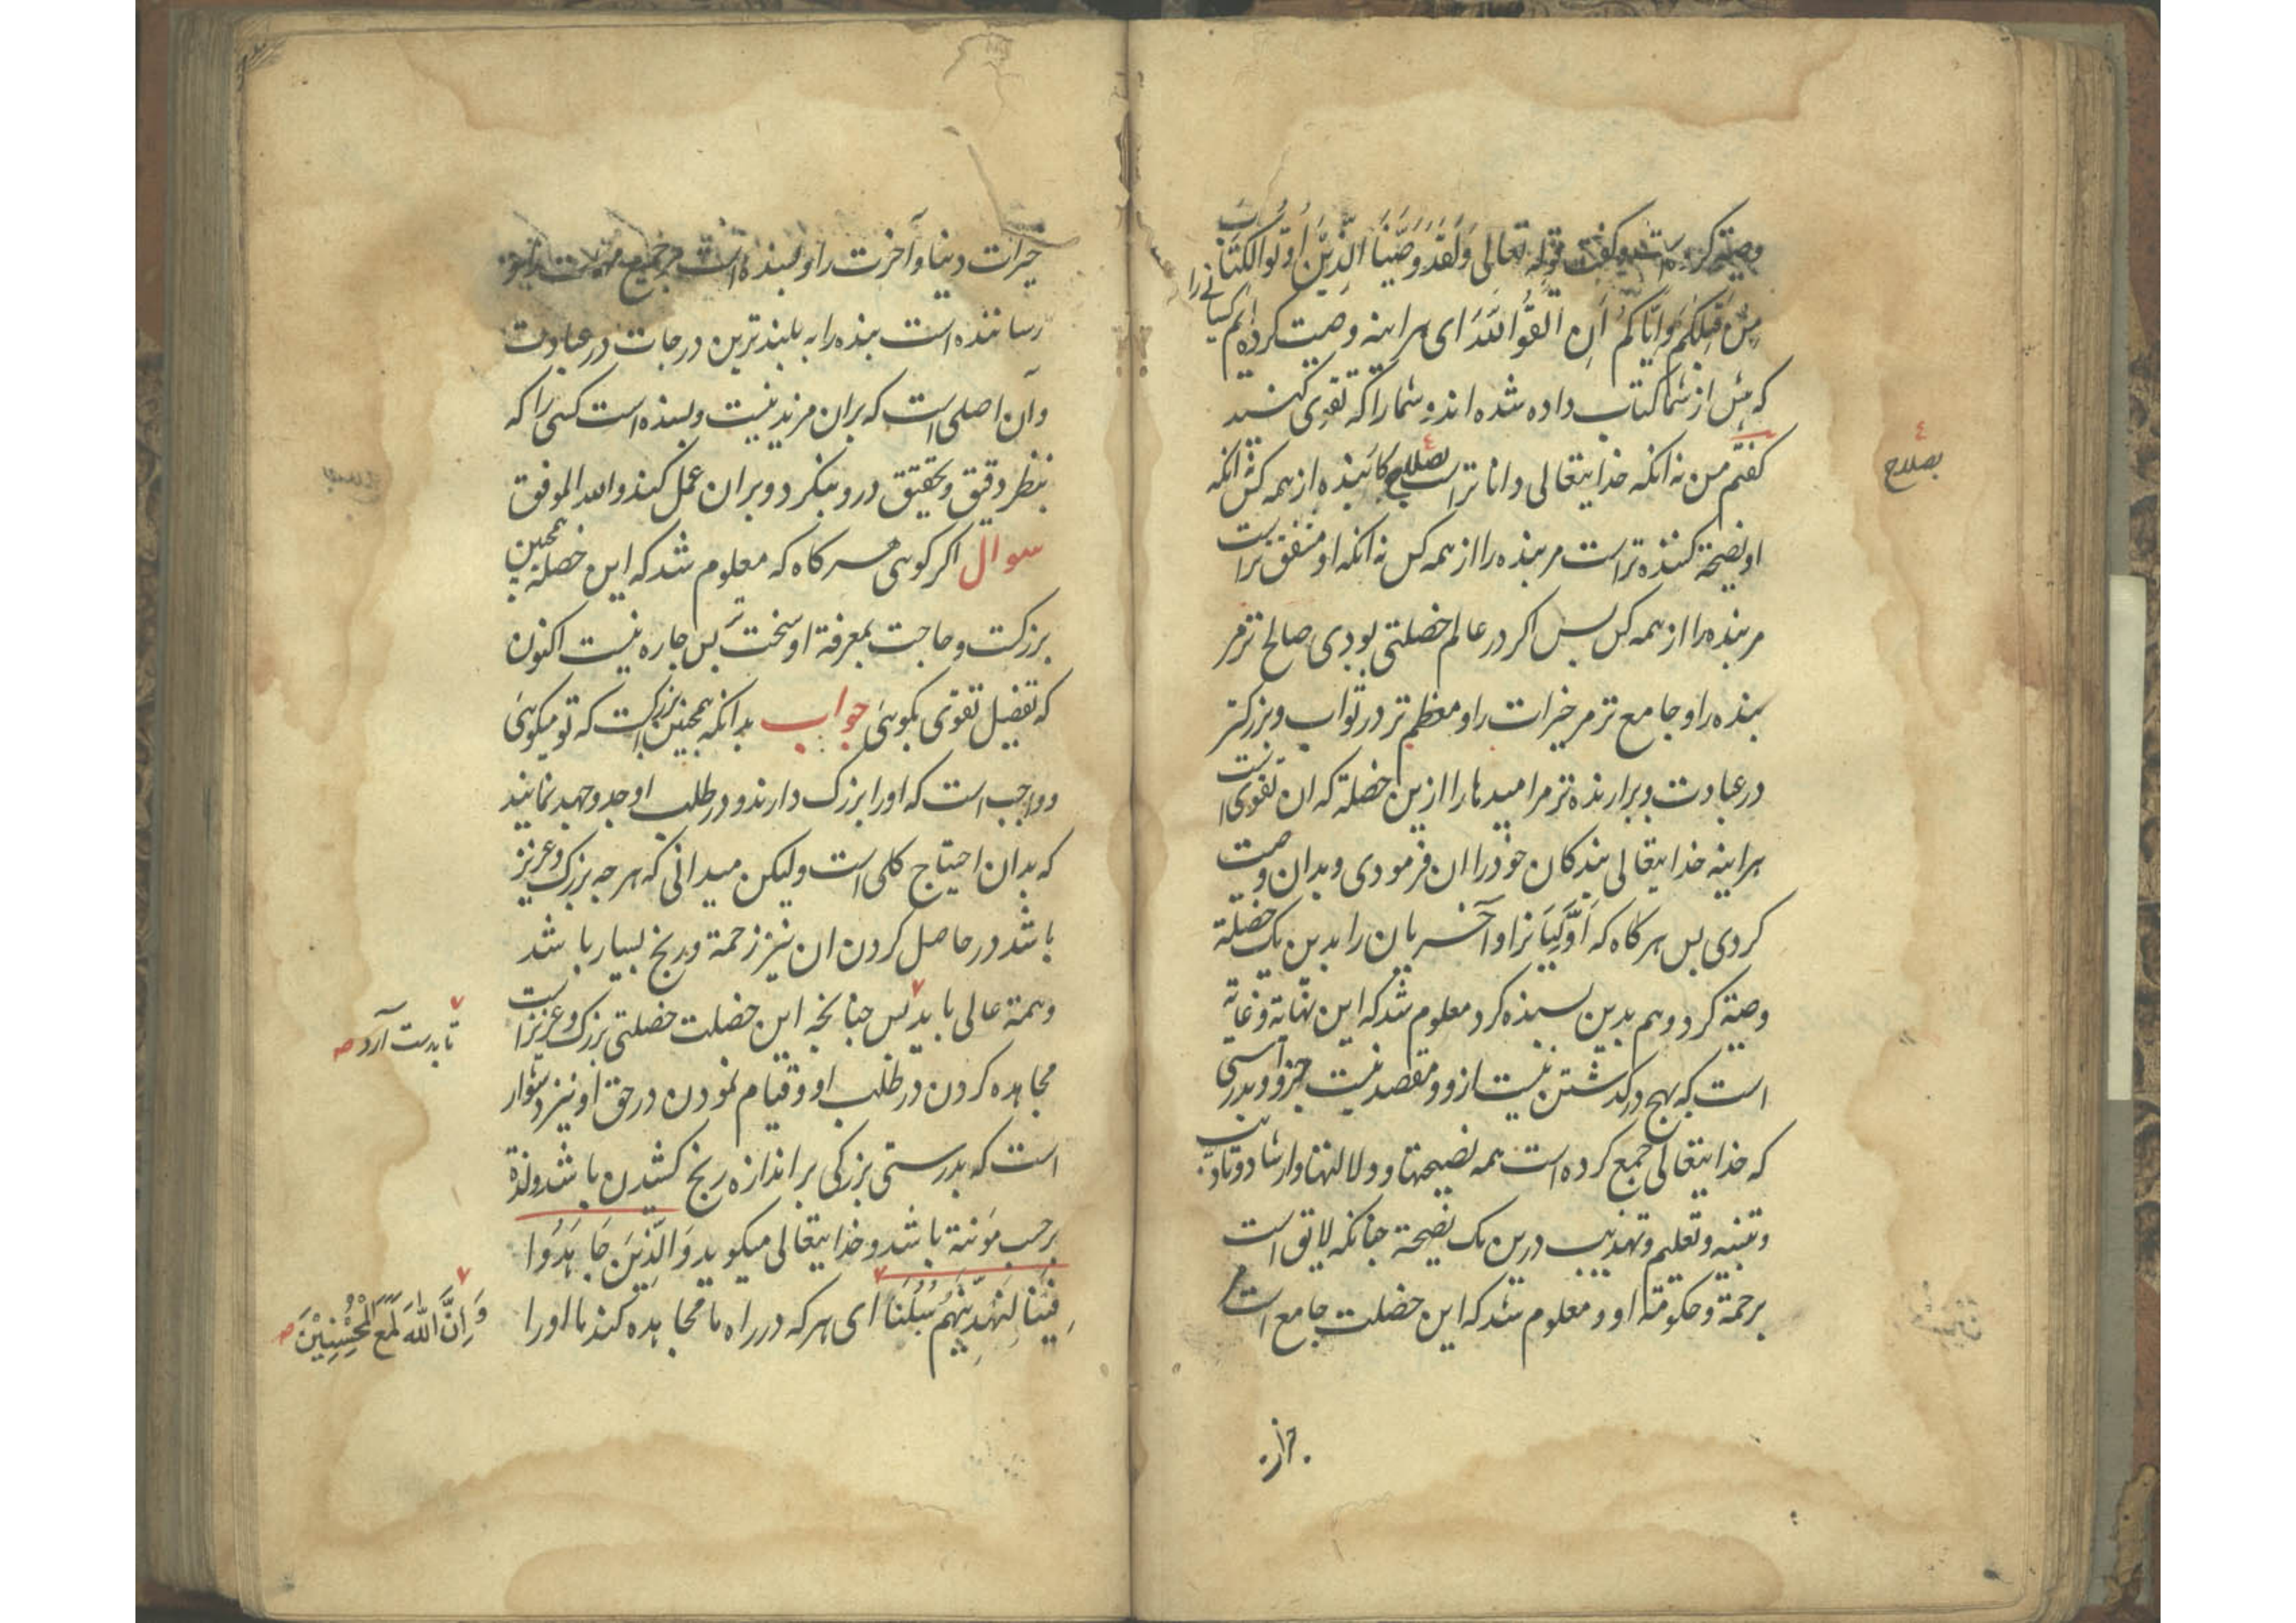 وصیة کرده است و کفت قوله تعالی وَلَقَدْ وَصَّیْنَا الَّذِیْنَ اُوتُوا الْکِتَابَ
مِنْ قَبْلِکُمْ وَاِیَّاکُمْ اَنِ اتَّقُوا اللّٰهَ ای هراینه وصیت کرده ایم کسانی را
که پیش از شما کتاب داده شده اند و شما را که تقوی کنید
کفتم من نه انکه خدایتعالی داناتر است بصلاح کار بنده از همه کس نه انکه
او نصیحة کننده تر است مر بنده را از همه کس نه انکه او مشفق تر است
مر بنده را از همه کس پس اکر در عالم خصلتی بودی صالح تر مر
بنده را و جامع تر مر خیرات را و معظم تر در ثواب و بزرکتر
در عبادت و برارنده تر مر امیدها را ازین خصلة که ان تقوی است
هراینه خدایتعالی بندکان خود را ان فرمودی و بدان وصیت
کردی پس هرکاه که اَوَّلیَانرا و آخریان را بدین یک خصلة
وصیة کرد و هم بدین بسنده کرد معلوم شد که این نهایة و غایة
است که هیچ درکذشتن نیست ازو و مقصد نیست جزو و بدرستی
که خدایتعالی جمع کرده است همه نصیحتها و دلالتها و ارشاد و تادیب
و تنبیه و تعلیم و تهذیب درین یک نصیحة جنانکه لایق است
برحمة و حکومة او و معلوم شد که این خصلت جامع است
بصلاح
خیرات
خیرات دینا و آخرت را و بسنده است مر جمیع مهمات را و
رساننده است بنده را به بلندترین درجات در عبادت
و آن اصلی است که بران مزید نیست و بسنده است کسی را که
بنظر دقیق و تحقیق درو بنکرد و بران عمل کند و الله الموفق
سوال اکر کوئی هر کاه که معلوم شد که این خصلة همچنین
بزرکست و حاجت بمعرفة او سخت تَر پس جاره نیست اکنون
که تفصیل تقوی بکوئی جواب بدانکه همچنین بزرکست که تو میکوئی
و واجب است که او را بزرک دارند و در طلب او جد و جهد نمایند
که بدان احتیاج کلی است ولیکن میدانی که هر جه بزرک و عزیز
باشد در حاصل کردن ان نیز زحمة و رنج بسیار باشد
و همة عالی باید پس جنانجه این خصلت خصلتی بزرک و عزیز است
مجاهده کردن در طلب او و قیام نمودن در حق او نیز دشوار
است که بدرستی بزرکی بر اندازه رنج کشیدن باشد و لذة
بر حسب مؤنة باشد و خدایتعالی میکوید وَالَّذِیْنَ جَاهَدُوا
فِیْنَا لَنَهْدِیَنَّهُمْ سُبُلَنَا ای هر که در راه ما مجاهده کند ما او را
تا بدست آرد صه
وَاِنَّ اللّٰهَ لَمَعَ الْمُحْسِنِیْنَ صه